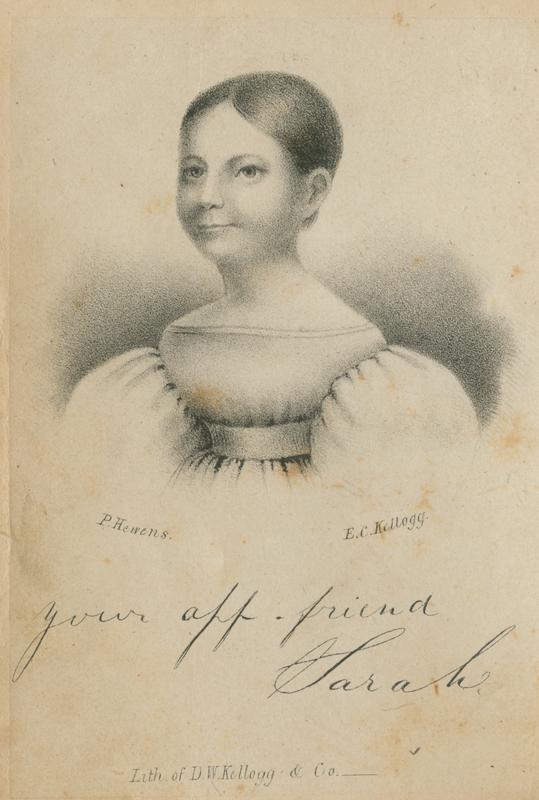 P. Hewens.
E.C. Kellogg.
your aff - friend
Sarah.
Lith. of D.W. Kellogg & Co.